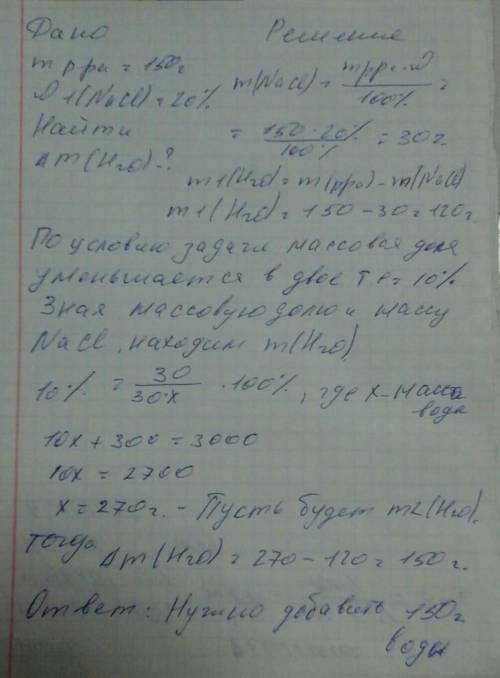 Дано Решение
m рра = 150г
ω1(NaCl) = 20% m(NaCl) = mрра·ω / 100% =
Найти = 150·20% / 100% = 30г.
Δm(H2O)-?
m1(H2O) = m(рра) - m(NaCl)
m1(H2O) = 150 - 30 = 120г
По условию задачи массовая доля
уменьшается в двое т е = 10%
Зная массовую долю и массу
NaCl, находим m(H2O)
10% = 30 / 30+x · 100%, где x - масса
воды
10x + 300 = 3000
10x = 2700
x = 270г. - Пусть будет m2(H2O),
тогда
Δm(H2O) = 270 - 120 = 150г.
Ответ: Нужно добавить 150г.
воды